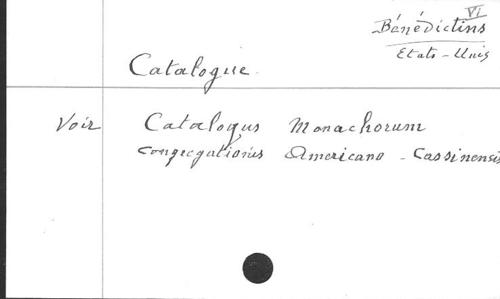 VI
Bénédictins
Etats-Unis
Catalogue.
Voir Catalogus Monachorum
Congregationis Americano-Cassinensis